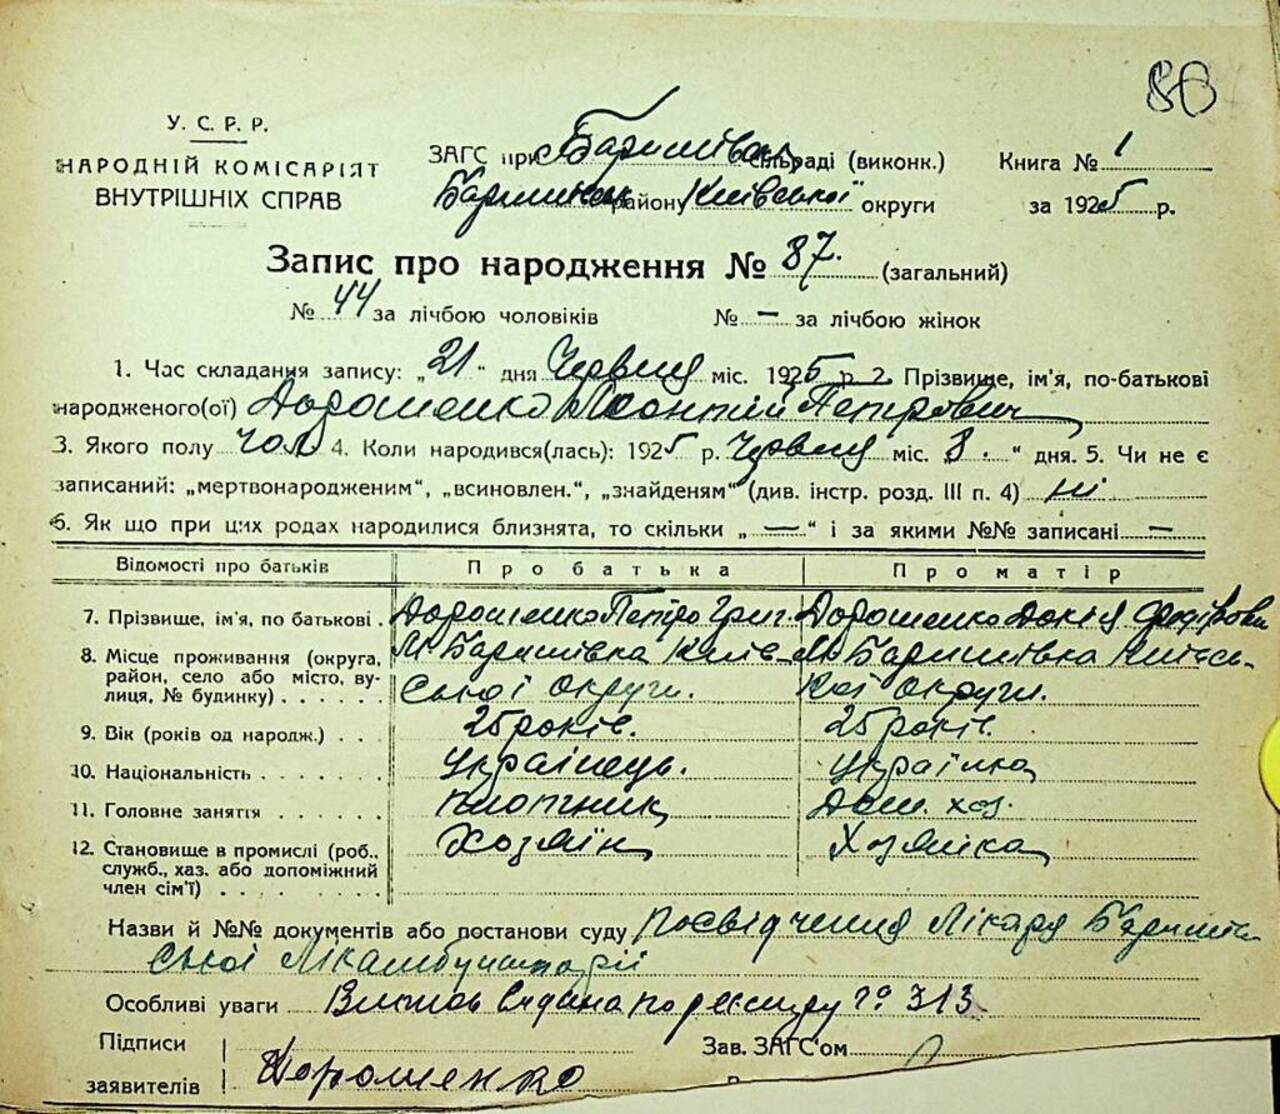 86
У. С. Р. Р.
НАРОДНІЙ КОМІСАРІЯТ
ВНУТРІШНІХ СПРАВ
ЗАГС при Баришівськ сільраді (виконк.)
Баришівськ району Київської округи
Книга № 1
за 1925 р.
Запис про народження № 87. (загальний)
№ 44 за лічбою чоловіків № — за лічбою жінок
1. Час складання запису: „21“ дня Червня міс. 1925 р. 2. Прізвище, ім'я, по-батькові
народженого(ої) Дорошенко Леонтій Петрович
3. Якого полу чол 4. Коли народився(лась): 1925 р. Червня міс. „8.“ дня. 5. Чи не є
записаний: „мертвонародженим“, „всиновлен.“, „знайденям“ (див. інстр. розд. III п. 4) ні
6. Як що при цих родах народилися близнята, то скільки „—“ і за якими №№ записані —
Відомості про батьків Про батька Про матір
7. Прізвище, ім'я, по батькові. Дорошенко Петро Григ. Дорошенко Докія Федорівна
8. Місце проживання (округа, район, село або місто, вулиця, № будинку) М. Баришівка Київської округи. М. Баришівка Київської округи.
9. Вік (років од народж.) 25 років. 25 років.
10. Національність Українець. Українка
11. Головне заняття плотник Дом. хоз.
12. Становище в промислі (роб., служб., хаз. або допоміжний член сім'ї) Хозяїн Хозяйка
Назви й №№ документів або постанови суду Посвідчення Лікаря Баришів
ської Лікамбулаторії
Особливі уваги по реєстру № 313
Підписи
заявителів Дорошенко
Зав. ЗАГС'ом